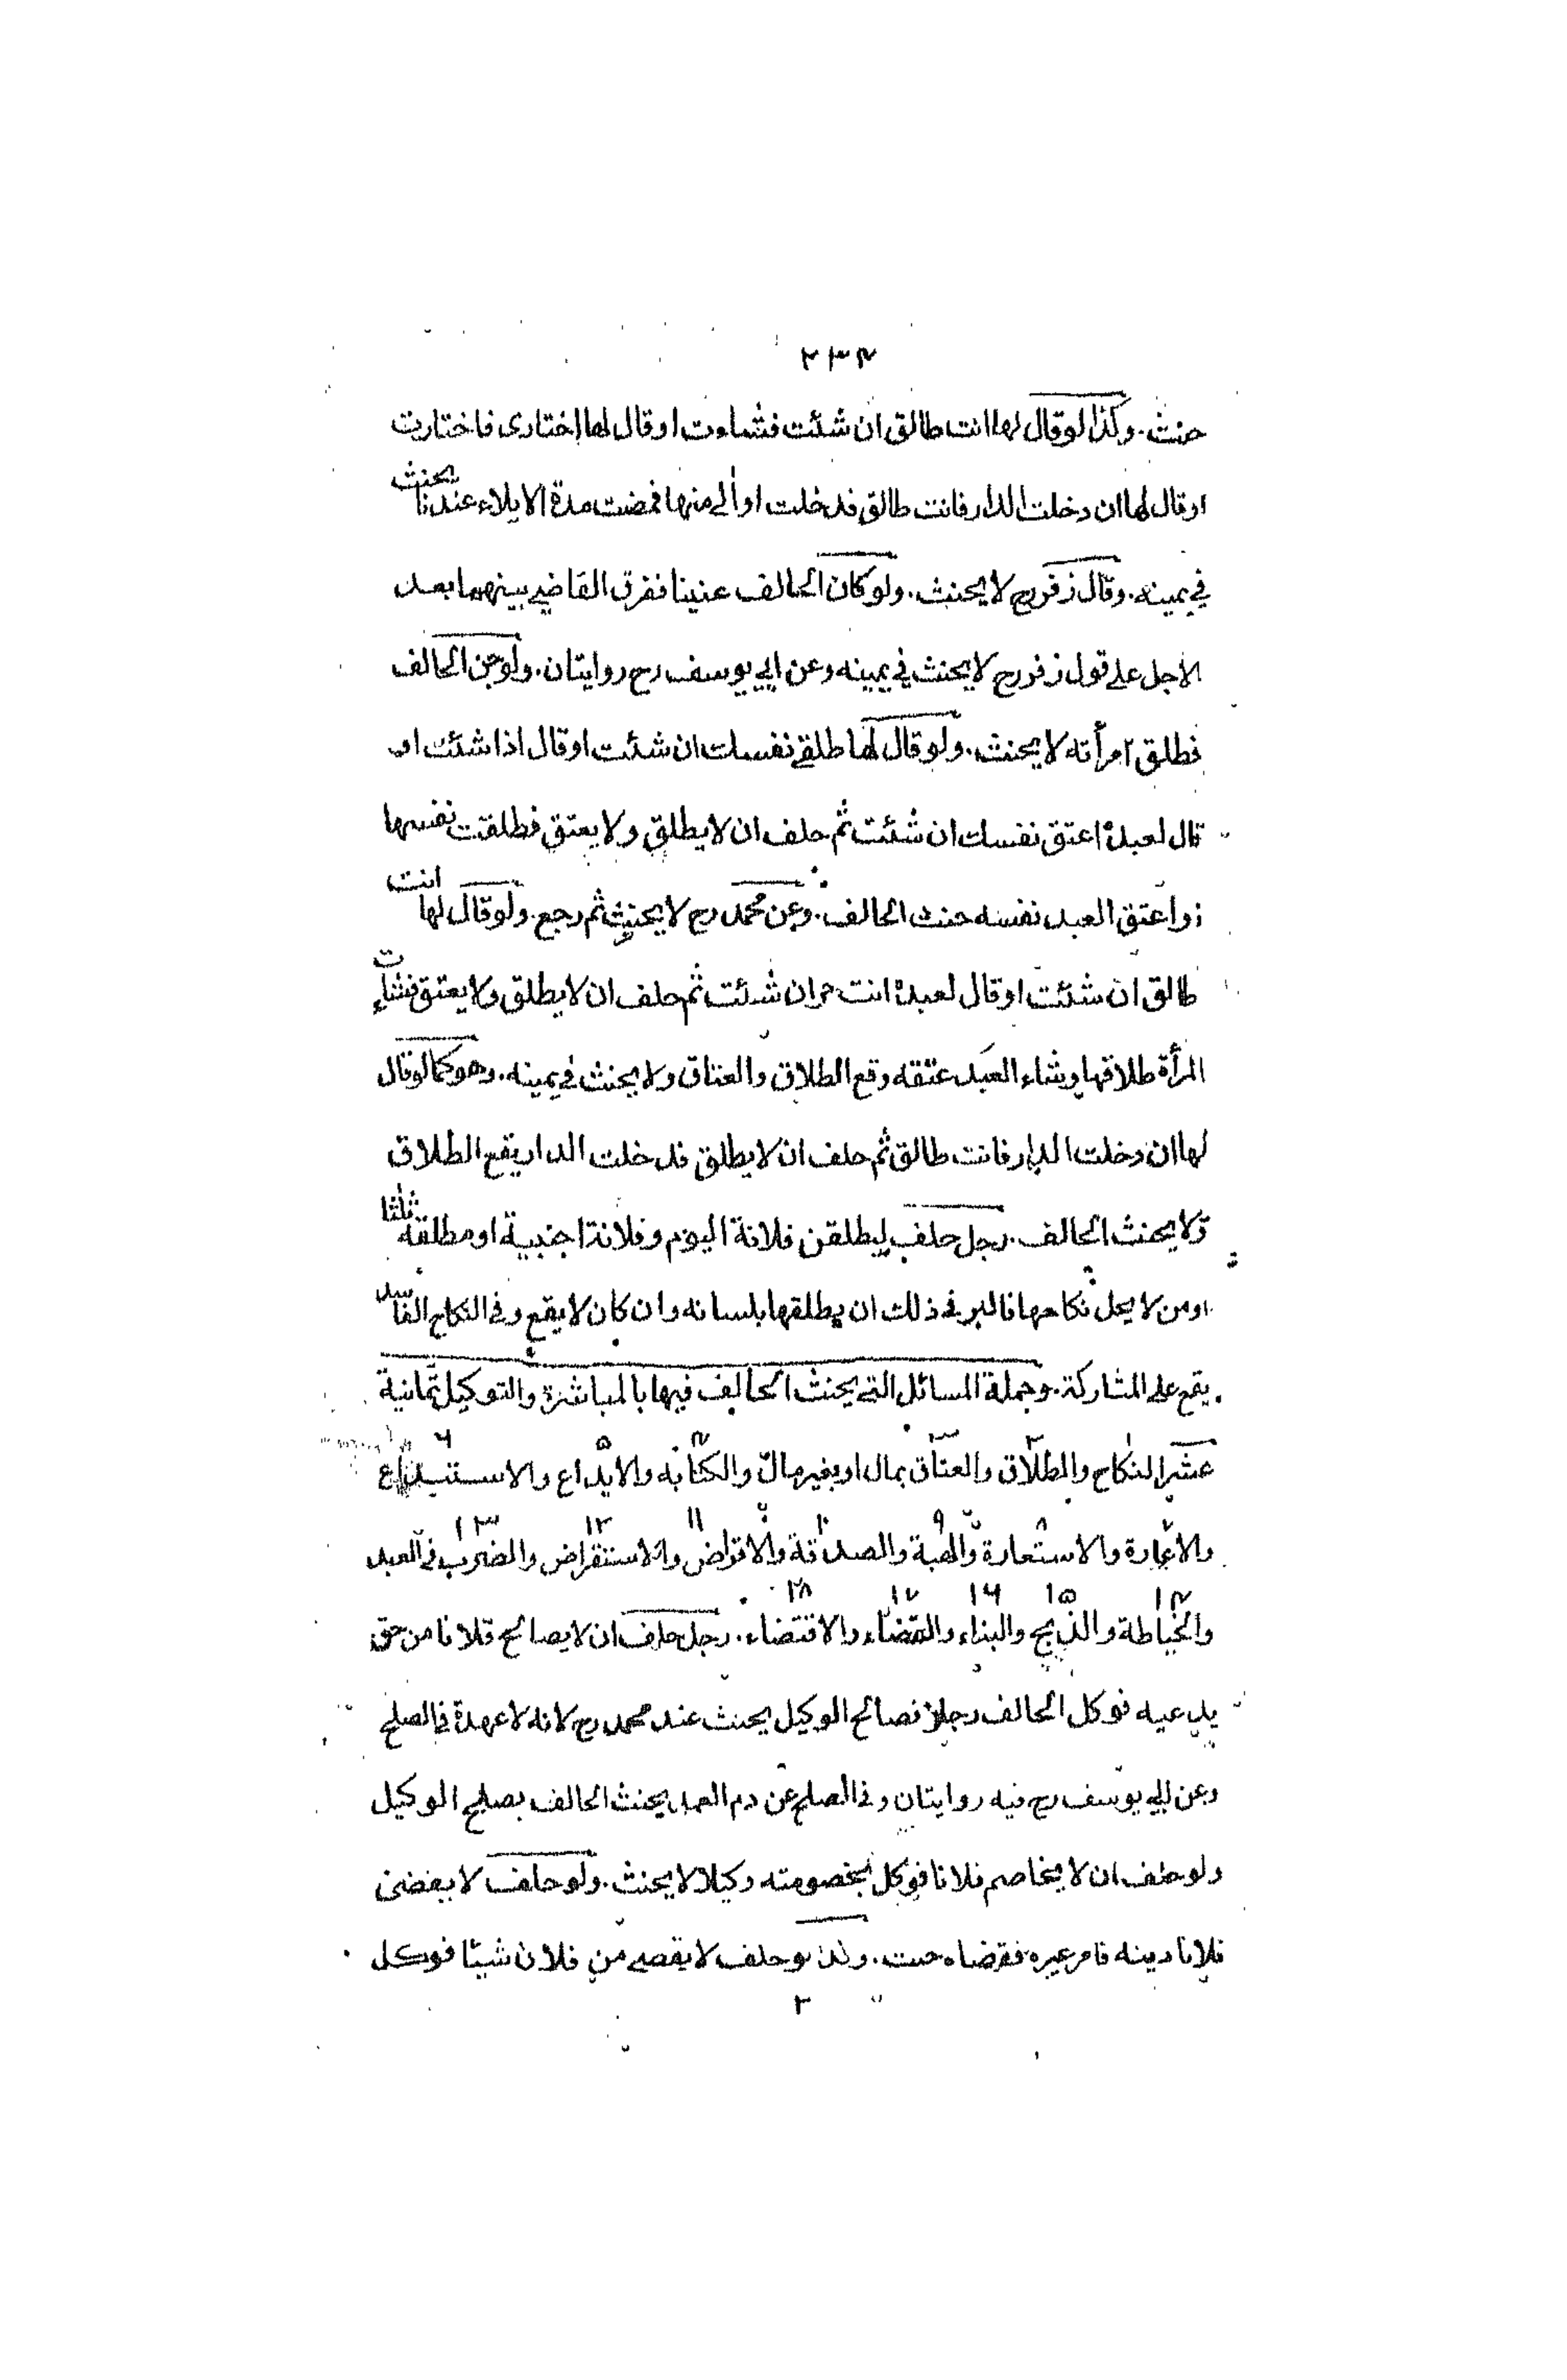 ٢٣٤
حنث. وكذا لو قال لها انت طالق ان شئت فشاءت او قال لها اختارى فاختارت
او قال لها ان دخلت الدار فانت طالق فدخلت او آلى منها فمضت مدة الايلاء عندنا يحنث
في يمينه. وقال زفر رح لا يحنث. ولو كان الحالف عنينا ففرق القاضي بينهما بعد
الاجل على قول زفر رح لا يحنث في يمينه وعن ابي يوسف رح روايتان. ولو جن الحالف
فطلق امرأته لا يحنث. ولو قال لها طلقي نفسك ان شئت او قال اذا شئت او
قال لعبده اعتق نفسك ان شئت ثم حلف ان لا يطلق ولا يعتق فطلقت نفسها
واعتق العبد نفسه حنث الحالف. وعن محمد رح لا يحنث ثم رجع. ولو قال لها انت
طالق ان شئت او قال لعبده انت حر ان شئت ثم حلف ان لا يطلق ولا يعتق فشاءت
المرأة طلاقها وشاء العبد عتقه وقع الطلاق والعتاق ولا يحنث في يمينه. وهو كما لو قال
لها ان دخلت الدار فانت طالق ثم حلف ان لا يطلق فدخلت الدار يقع الطلاق
ولا يحنث الحالف. رجل حلف ليطلقن فلانة اليوم وفلانة اجنبية او مطلقة ثلثا
او من لا يحل نكاحها فالبر في ذلك ان يطلقها بلسانه وان كان لا يقع وفي النكاح الفاسد
يقع على المشاركة. وجملة المسائل التي يحنث الحالف فيها بالمباشرة والتوكيل ثمانية
عشر النكاح والطلاق والعتاق بمال او بغير مال والكتابه والايداع والاستيداع
٢ ٣ ٤ ٥ ٦
والاعارة والاستعارة والهبة والصدقة والاقراض والاستقراض والضرب في العبد
٧ ٨ ٩ ١٠ ١١ ١٢ ١٣
والخياطة والذبح والبناء والقضاء والاقتضاء. رجل حلف ان لا يصالح فلانا من حق
١٤ ١٥ ١٦ ١٧ ١٨
يدعيه فوكل الحالف رجلا فصالح الوكيل يحنث عند محمد رح لانه لا عهدة في الصلح
وعن ابي يوسف رح فيه روايتان وفي الصلح عن دم العمد يحنث الحالف بصلح الوكيل
ولو حلف ان لا يخاصم فلانا فوكل بخصومته وكيلا لا يحنث. ولو حلف لا يقضى
فلانا دينه فامر غيره فقضاه حنث. ولو حلف لا يقضى من فلان شيئا فوكل
٢